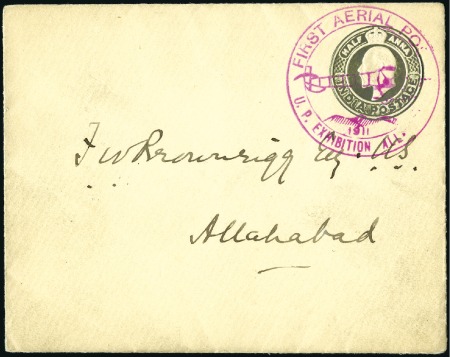 FIRST AERIAL PO
HALF ANNA
INDIA POSTAGE
1911
U. P. EXHIBITION ALL.
F W Brownrigg Esq. ICS
Allahabad